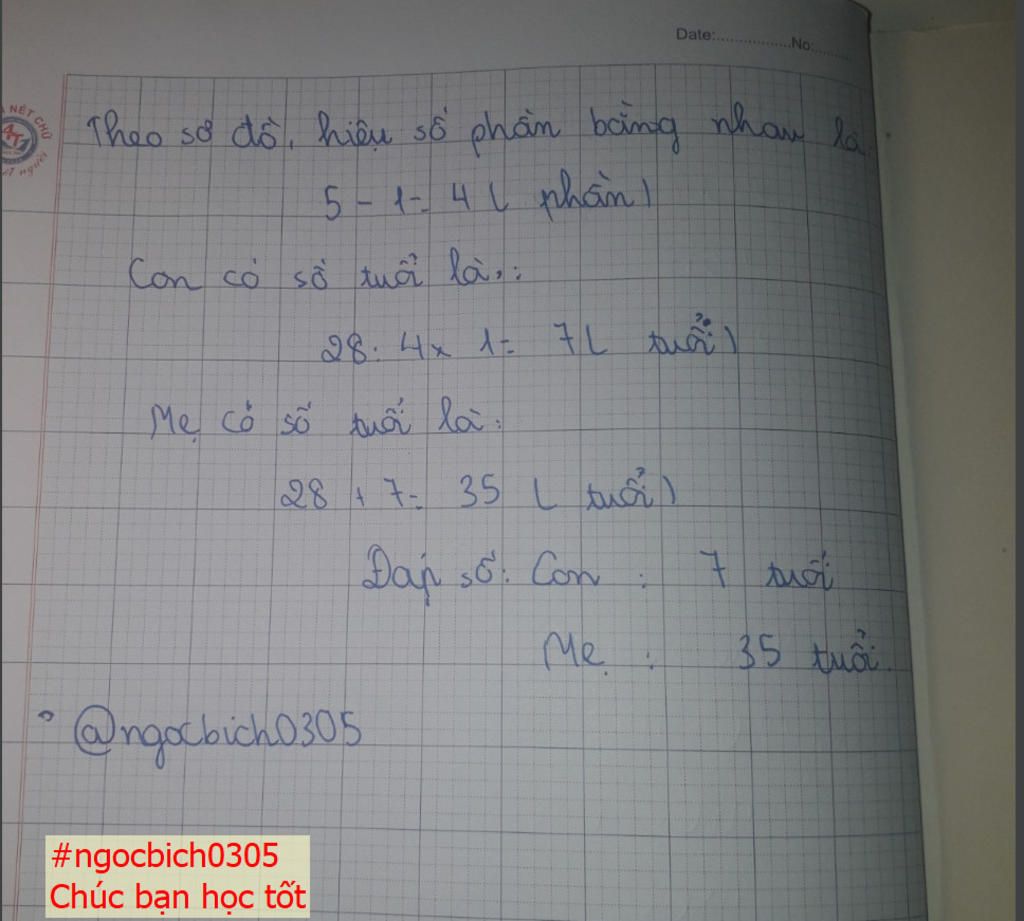 Date:.................No:........
NÉT CHỮ
Theo sơ đồ, hiệu số phần bằng nhau là
5 - 1 = 4 ( phần )
Con có số tuổi là :
28 : 4 x 1 = 7 ( tuổi )
Mẹ có số tuổi là :
28 + 7 = 35 ( tuổi )
Đáp số : Con : 7 tuổi
Mẹ : 35 tuổi.
@ngocbich0305
#ngocbich0305
Chúc bạn học tốt